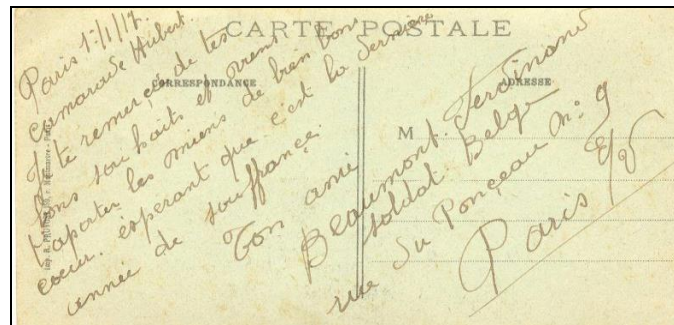 CARTE POSTALE
CORRESPONDANCE
ADRESSE
Paris 1/1/17.
Camarade Hubert.
Je te remerçie de tes
bons souhaits et vient
t'aporter les miens de bien bon
coeur. espérant que c'est la dernière
année de souffrance.
Ton ami
Beaumont Ferdinand
soldat Belge
rue du Ponçeau N° 9
Paris E/V
M